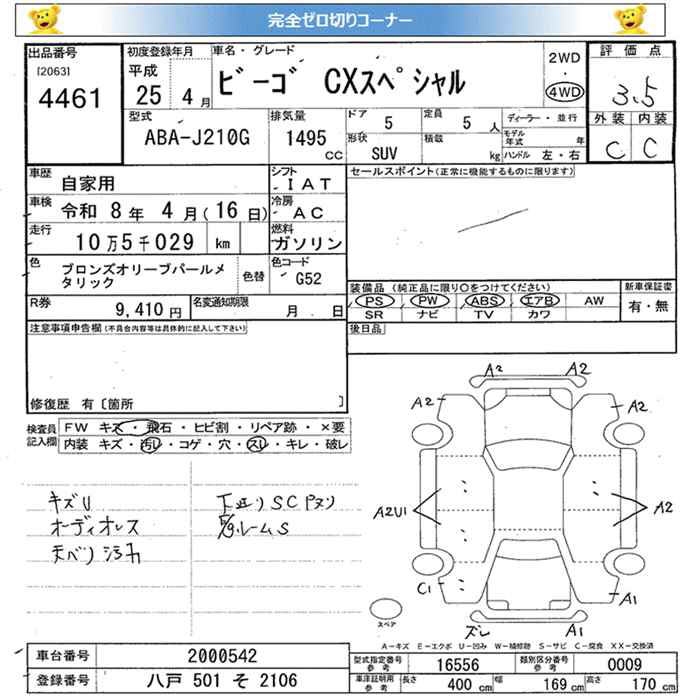 完全ゼロ切りコーナー
出品番号 初度登録年月 車名・グレード 評価点
[2063] 平成 2WD
4461 25 4月 ビーゴ CXスペシャル ・ 4WD 3.5
型式 排気量 ドア 5 定員 5人 ディーラー・並行 外装 内装
ABA-J210G 1495 CC 形状 SUV 積載 kg モデル年式 年 C C
ハンドル 左・右
車歴 自家用 シフト IAT セールスポイント(正常に機能するものに限ります)
車検 令和 8年 4月(16日) 冷房 AC
走行 10万5千029 km 燃料 ガソリン
色 ブロンズオリーブパールメタリック 色替 色コード G52
装備品(純正品に限り○をつけてください) 新車保証書
R券 9,410円 名変通知期限 月 日 PS PW ABS エアB AW 有・無
SR ナビ TV カワ
注意事項申告欄(不具合内容等は具体的に記入して下さい) 後日品
修復歴 有〔箇所 〕
検査員記入欄 FW キズ・飛石・ヒビ割・リペア跡・×要
内装 キズ・汚れ・コゲ・穴・スレ・キレ・破レ
キズU
オーディオレス
下廻りSCPヌリ
ルームS
A2 A2
A2 A2
A2U1 A2
C1 A1
ズレ A1
スペア
A-キズ E-エクボ U-凹み W-補修跡 S-サビ C-腐食 XX-交換済
車台番号 2000542 型式指定番号 参考 16556 類別区分番号 参考 0009
登録番号 八戸 501 そ 2106 車庫証明用 参考 長さ 400 cm 幅 169 cm 高さ 170 cm